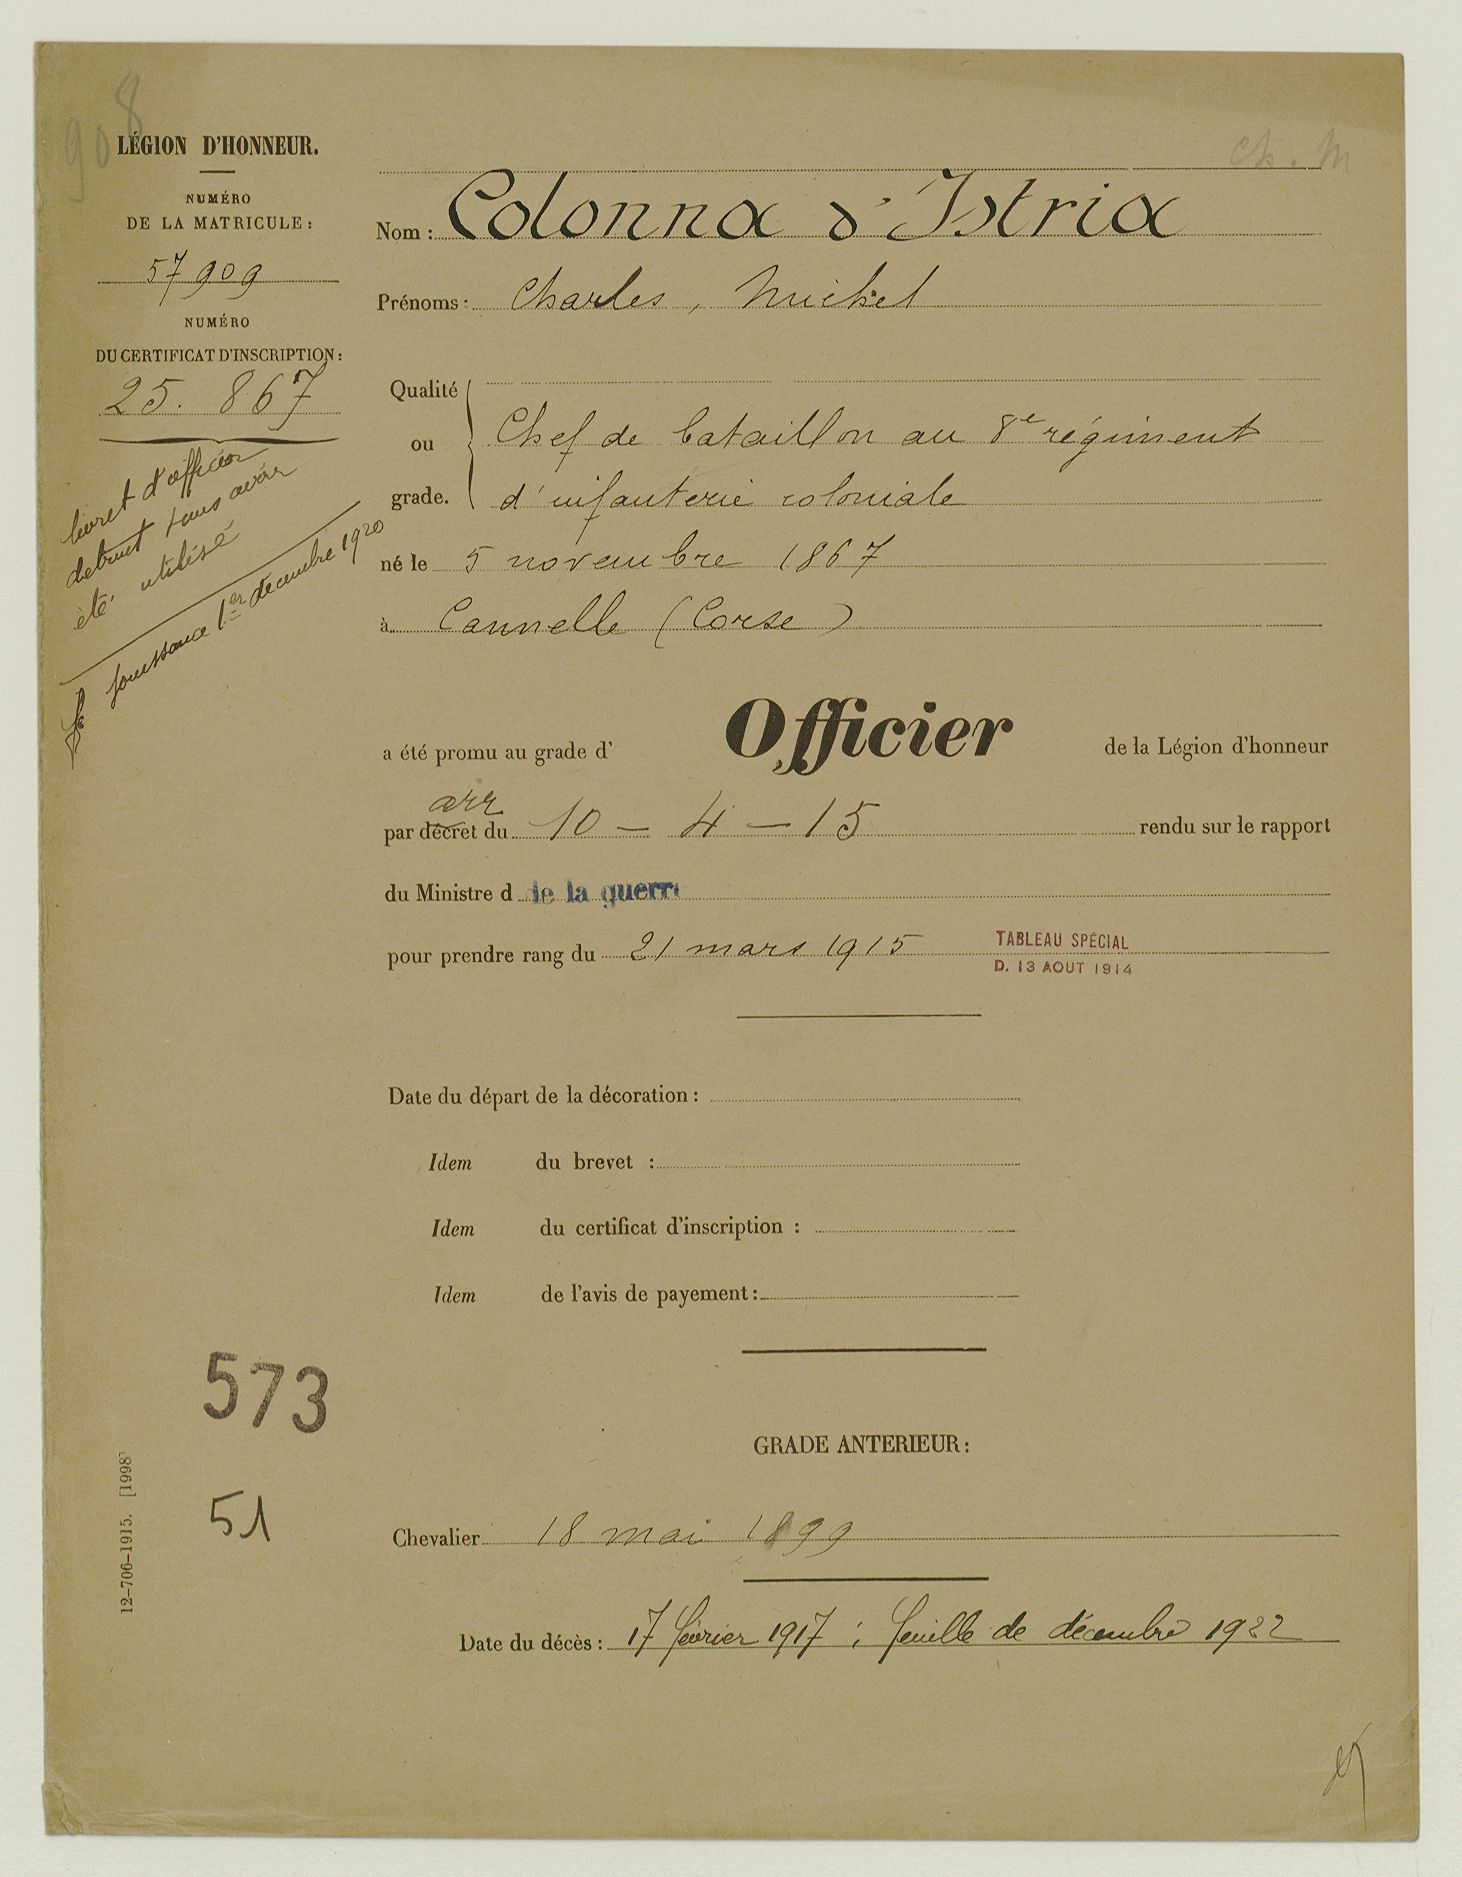 908
LÉGION D'HONNEUR.
Ch. M
NUMÉRO
DE LA MATRICULE :
57909
NUMÉRO
DU CERTIFICAT D'INSCRIPTION :
25. 867
livret d'officier
detruit sans avoir
été utilisé
Jouissance 1er decembre 1920
Nom : Colonna d'Istria
Prénoms : Charles, Michel
Qualité
ou
grade.
Chef de bataillon au 8e régiment
d'infanterie coloniale
né le 5 novembre 1867
à Cannelle (Corse)
a été promu au grade d' Officier de la Légion d'honneur
arr
par décret du 10 - 4 - 15 rendu sur le rapport
du Ministre d de la guerre
pour prendre rang du 21 mars 1915
TABLEAU SPÉCIAL
D. 13 AOUT 1914
Date du départ de la décoration :
Idem du brevet :
Idem du certificat d'inscription :
Idem de l'avis de payement :
573
51
12-706-1915. [1998]
GRADE ANTERIEUR :
Chevalier 18 mai 1899
Date du décès : 17 février 1917 ; feuille de décembre 1922